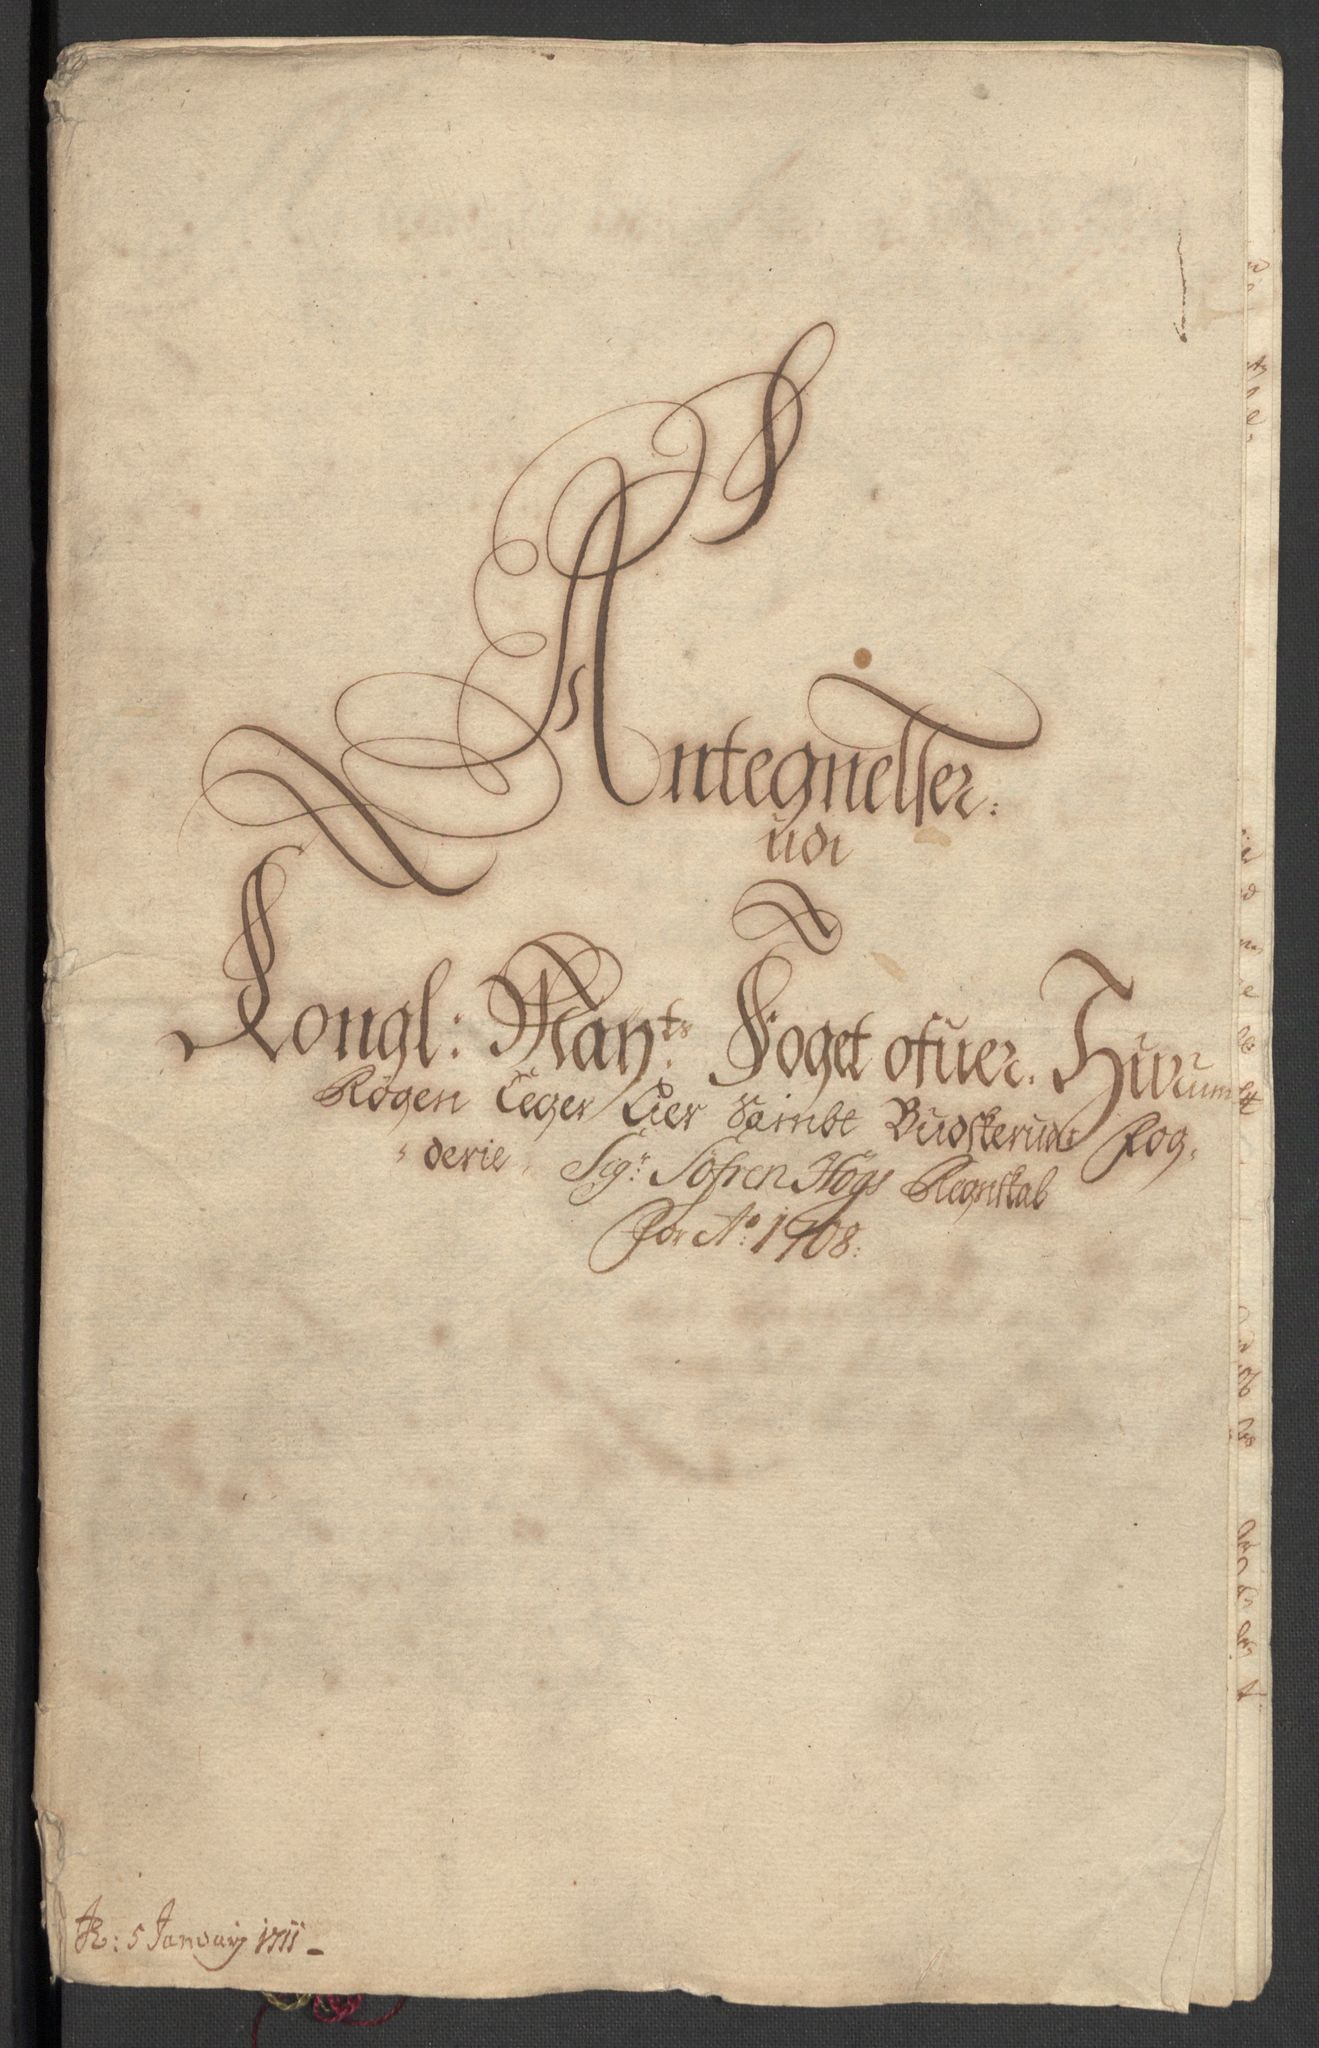 Antegnelser:
udi
Kongl: May:ts Foget ofuer. Hurum
Røgen Eeger Lier Sambt Budskerud: Fog,
derie, Sig:r Søfren Høgs Regnskab
For A:o 1708:
R: 5 January 1711 -